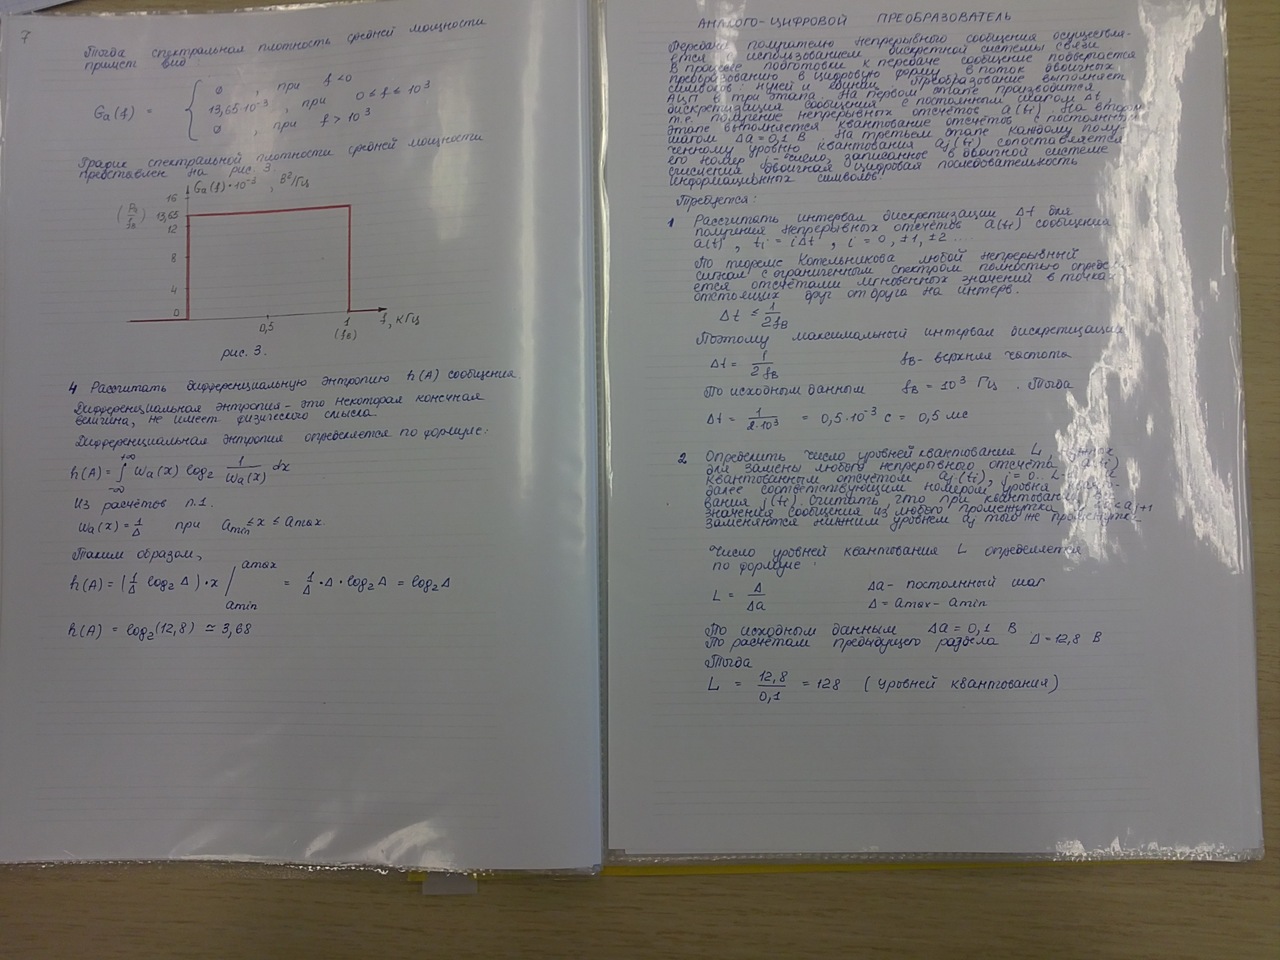 7
Тогда спектральная плотность средней мощности
примет вид
Ga(f) = { 0, при f<0
13,65·10⁻³, при 0 ≤ f ≤ 10³
0, при f > 10³
График спектральной плотности средней мощности
представлен на рис. 3.
Ga(f)·10⁻³, В²/Гц
16
13,65
12
8
4
0
0,5
1
(fв)
f, кГц
рис. 3.
4 Рассчитать дифференциальную энтропию h(A) сообщения.
Дифференциальная энтропия - это некоторая конечная
величина, не имеет физического смысла.
Дифференциальная энтропия определяется по формуле:
h(A) = ∫ Wa(x) log₂ 1/Wa(x) dx
Из расчётов п.1.
Wa(x) = 1/Δ при amin ≤ x ≤ amax
Таким образом,
h(A) = (1/Δ log₂ Δ)·x | amax amin = 1/Δ · Δ · log₂Δ = log₂Δ
h(A) = log₂(12,8) ≃ 3,68
АНАЛОГО-ЦИФРОВОЙ ПРЕОБРАЗОВАТЕЛЬ
Передача получателю непрерывного сообщения осуществля-
ется с использованием дискретной системы связи
В процессе подготовки к передаче сообщение подвергается
преобразованию в цифровую форму, в поток двоичных
символов: нулей и единиц. Преобразование выполняет
АЦП в три этапа. На первом этапе производится
дискретизация сообщения с постоянным шагом Δt,
т.е. получение непрерывных отсчётов a(ti). На втором
этапе выполняется квантование отсчётов с постоянным
шагом Δa = 0,1 В. На третьем этапе каждому полу-
ченному уровню квантования aj(ti) сопоставляется
его номер j - число, записанное в двоичной системе
счисления, двоичная цифровая последовательность
информационных символов.
Требуется:
1 Рассчитать интервал дискретизации Δt для
получения непрерывных отсчётов a(ti) сообщения
a(t), ti = iΔt, i = 0, ±1, ±2 ....
По теореме Котельникова любой непрерывный
сигнал с ограниченным спектром полностью опреде-
ется отсчётами мгновенных значений в точках
отстоящих друг от друга на интерв.
Δt ≤ 1/2fв
Поэтому максимальный интервал дискретизации
Δt = 1/2fв fв - верхняя частота
По исходным данным fв = 10³ Гц. Тогда
Δt = 1/2·10³ = 0,5·10⁻³ с = 0,5 мс
2 Определить число уровней квантования L,
для замены любого непрерывного отсчёта a(ti)
квантованным отсчётом aj(ti), j = 0...
далее соответствующим номером уровня
вания j(ti). Считать, что при квантовании
значения сообщения из любого промежутка
заменяются нижним уровнем aj того же промежутка
Число уровней квантования L определяется
по формуле:
L = Δ/Δa Δa - постоянный шаг
Δ = amax - amin
По исходным данным Δa = 0,1 В
По расчётам предыдущего раздела Δ = 12,8 В
Тогда
L = 12,8/0,1 = 128 (уровней квантования)